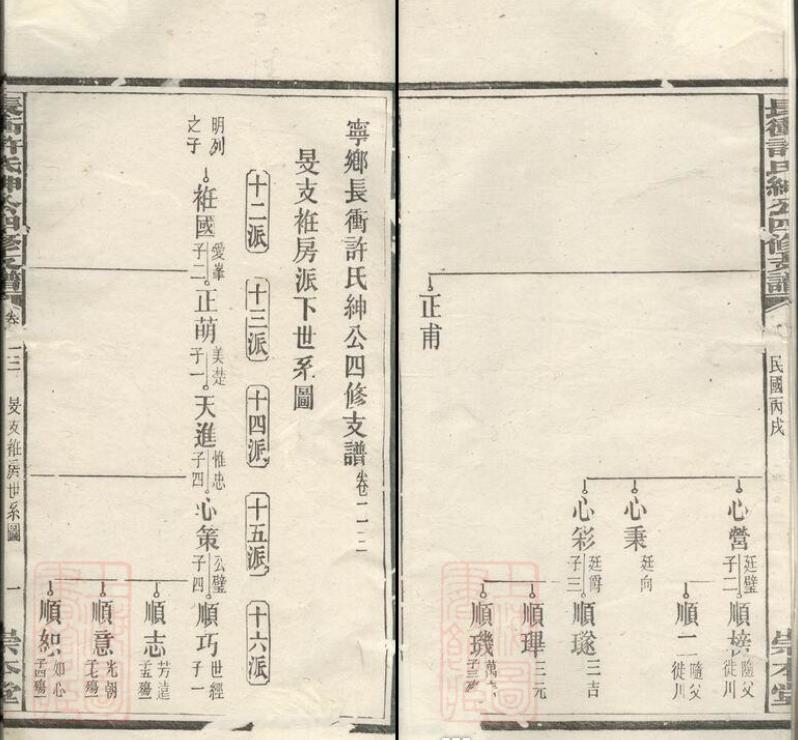 寧鄉長衝許氏紳公四修支譜卷二三
旻支祍房派下世系圖
十二派
十三派
十四派
十五派
十六派
明列之子
祍國 愛峯 子二
正萌 美楚 子一
天進 惟忠 子四
心策 公璧 子四
順巧 世經 子一
順志 芳遠
順意 光朝
順恕 如心
長衝許氏紳公四修支譜
卷二三
旻支祍房世系圖
一
崇本堂
長衝許氏紳公四修支譜
民國丙戌
崇本堂
正甫
心營 廷璧 子二
順榜 隨父徙川
順二 隨父徙川
心秉 廷向
心彩 廷爵 子三
順璲 三吉
順琿 三元
順璣